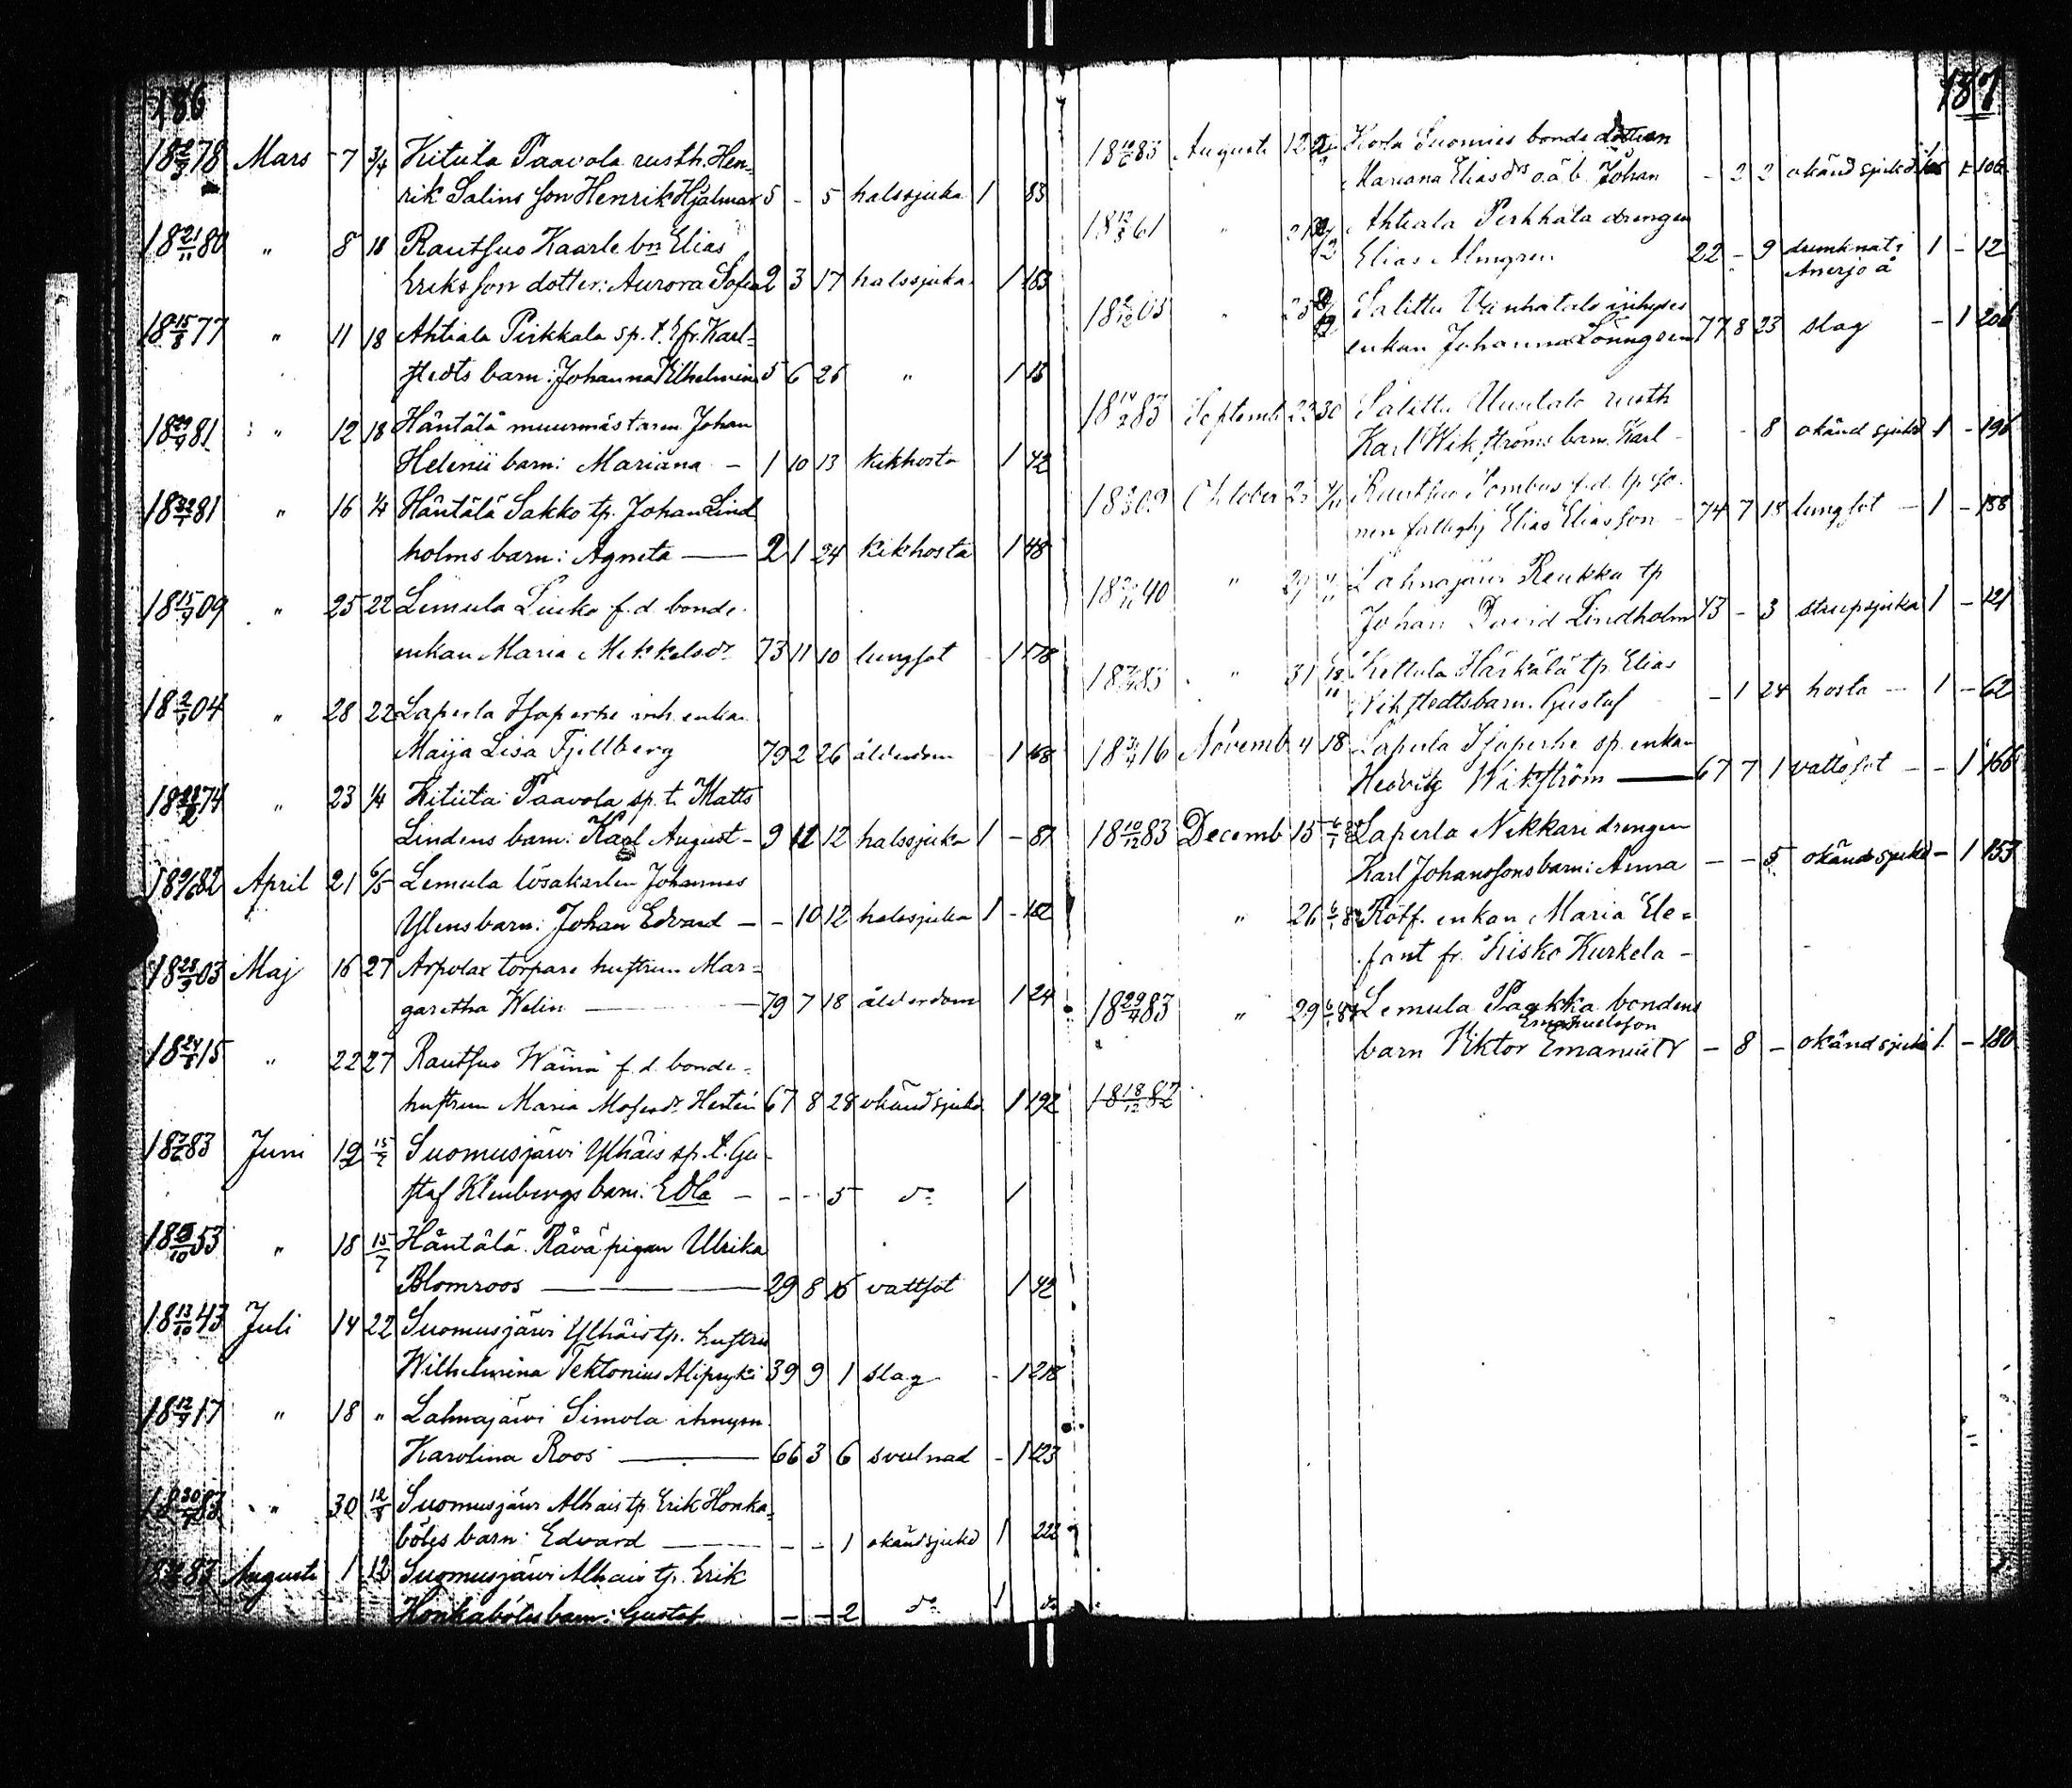 186
18 2/3 78 Mars 7 3/4 Kitula Paavola rusth. Hen-
rik Salins son Henrik Hjalmar 5 - 5 halssjuka 1 83
18 21/11 80 " 8 18 Rautsuo Kaarle bn Elias
Eriksson dotter: Aurora Sofia 2 3 17 halssjuka 1 183
18 15/8 77 " 11 18 Ahtiala Pirkkala sp. t. Efr. Karl-
stedts barn: Johanna Vilhelmina 5 6 26 " 1 15
18 29/4 81 " 12 18 Häntälä muurmästaren Johan
Helenii barn: Mariana - 1 10 13 kikhosta 1 42
18 22/1 81 " 16 1/4 Häntälä Sakko tp. Johan Lind
holms barn: Agneta — 2 1 24 kikhosta 1 48
18 15/4 09 " 25 22 Lemula f.d. bonde
enkan Maria Mikkelsdr 73 11 10 lungsot - 1 178
18 2/1 04 " 28 22 Laperla inh. enkan
Maija Lisa Fjellberg 79 2 26 ålderdom - 1 168
74 " 23 1/4 Kituta Paavola sp. t. Matts
Lindens barn: Karl August - 9 12 halssjuka 1 - 87
18 9/6 82 April 21 6/5 Lemula lösakarlen Johannes
Ylens barn: Johan Edvard - - 10 12 halssjuka 1 - 182
18 28/9 03 Maj 16 27 Arpolax torpare hustrun Mar-
garetha Welin — 79 7 18 ålderdom 1 24
18 24/8 15 " 22 27 Rautsuo Wäinä f.d. bonde-
hustrun Maria Mosesdr 67 8 28 okänd sjukd 1 192
18 7/6 83 Juni 12 15/7 Suomusjärvi Ylhäis sp. t. Gu-
staf Klenbergs barn: Edla - - - 5 do 1
53 " 18 15/7 Häntälä Rävä pigan Ulrika
Blomroos — 29 8 vattsot 1 42
18 13/10 43 Juli 14 22 Suomusjärvi Ylhäis tp. hustru
Wilhelmina Tektonius 39 9 1 slag - 1 218
18 12/4 17 " 18 " Lahnajärvi Simola
Karolina Roos — 66 3 6 svulnad - 1 123
18 30/7 83 " 30 12/8 Suomusjärvi Alhais tp. Erik Honka-
böles barn: Edvard — - - 1 okänd sjukd 1 222
83 Augusti 1 12 Suomusjärvi Alhais tp. Erik
Honkaböles barn: Gustaf - - 2 do 1 do
187
18 10/6 83 Augusti 12 Suomies bonde dottern
Mariana Eliasdrs o.ä.b. Johan - 2 2 okänd sjukd 106
18 12/8 61 " 21 Ahtiala Pirkkala drengen
Elias Almgren 22 - 9 drunknat i 1 - 12
Anerjo å
05 " 25 Salittu Vanhatalo inhyses
enkan Johanna Lönngren 77 8 23 slag - 1 206
83 Septemb 22 30 Salittu Uusitalo rusth
Karl Wikströms barn Karl - - 8 okänd sjukd 1 - 196
09 October Rautsuo f.d.
Elias Eliasson - 74 7 18 lungsot - 1 - 188
40 " 29 Lahnajärvi Reukka tp
Johan David Lindholm 43 - 3 strupsjuka 1 - 121
83 " 31 18/11 Kettula Härkälä tp. Elias
Wikstedts barn. Gustaf - 1 24 hosta - 1 - 62
16 Novemb 4 18 Laperla sp. enkan
Hedvig Wikström — 67 7 1 vattusot - - 1 166
18 10/12 83 Decemb 15 6/1 84 Laperla Nikkari drengen
Karl Johanssons barn: Anna - - 5 okänd sjukd - 1 153
" 26 6/1 84 Rotf. enkan Maria Ele-
fant fr. Kisko Kurkela -
18 29/4 83 " 29 6/1 84 Lemula Paakka bondens
Emanuelsson
barn Viktor Emanuel - 8 - okänd sjukd 1 - 180
18 18/12 82